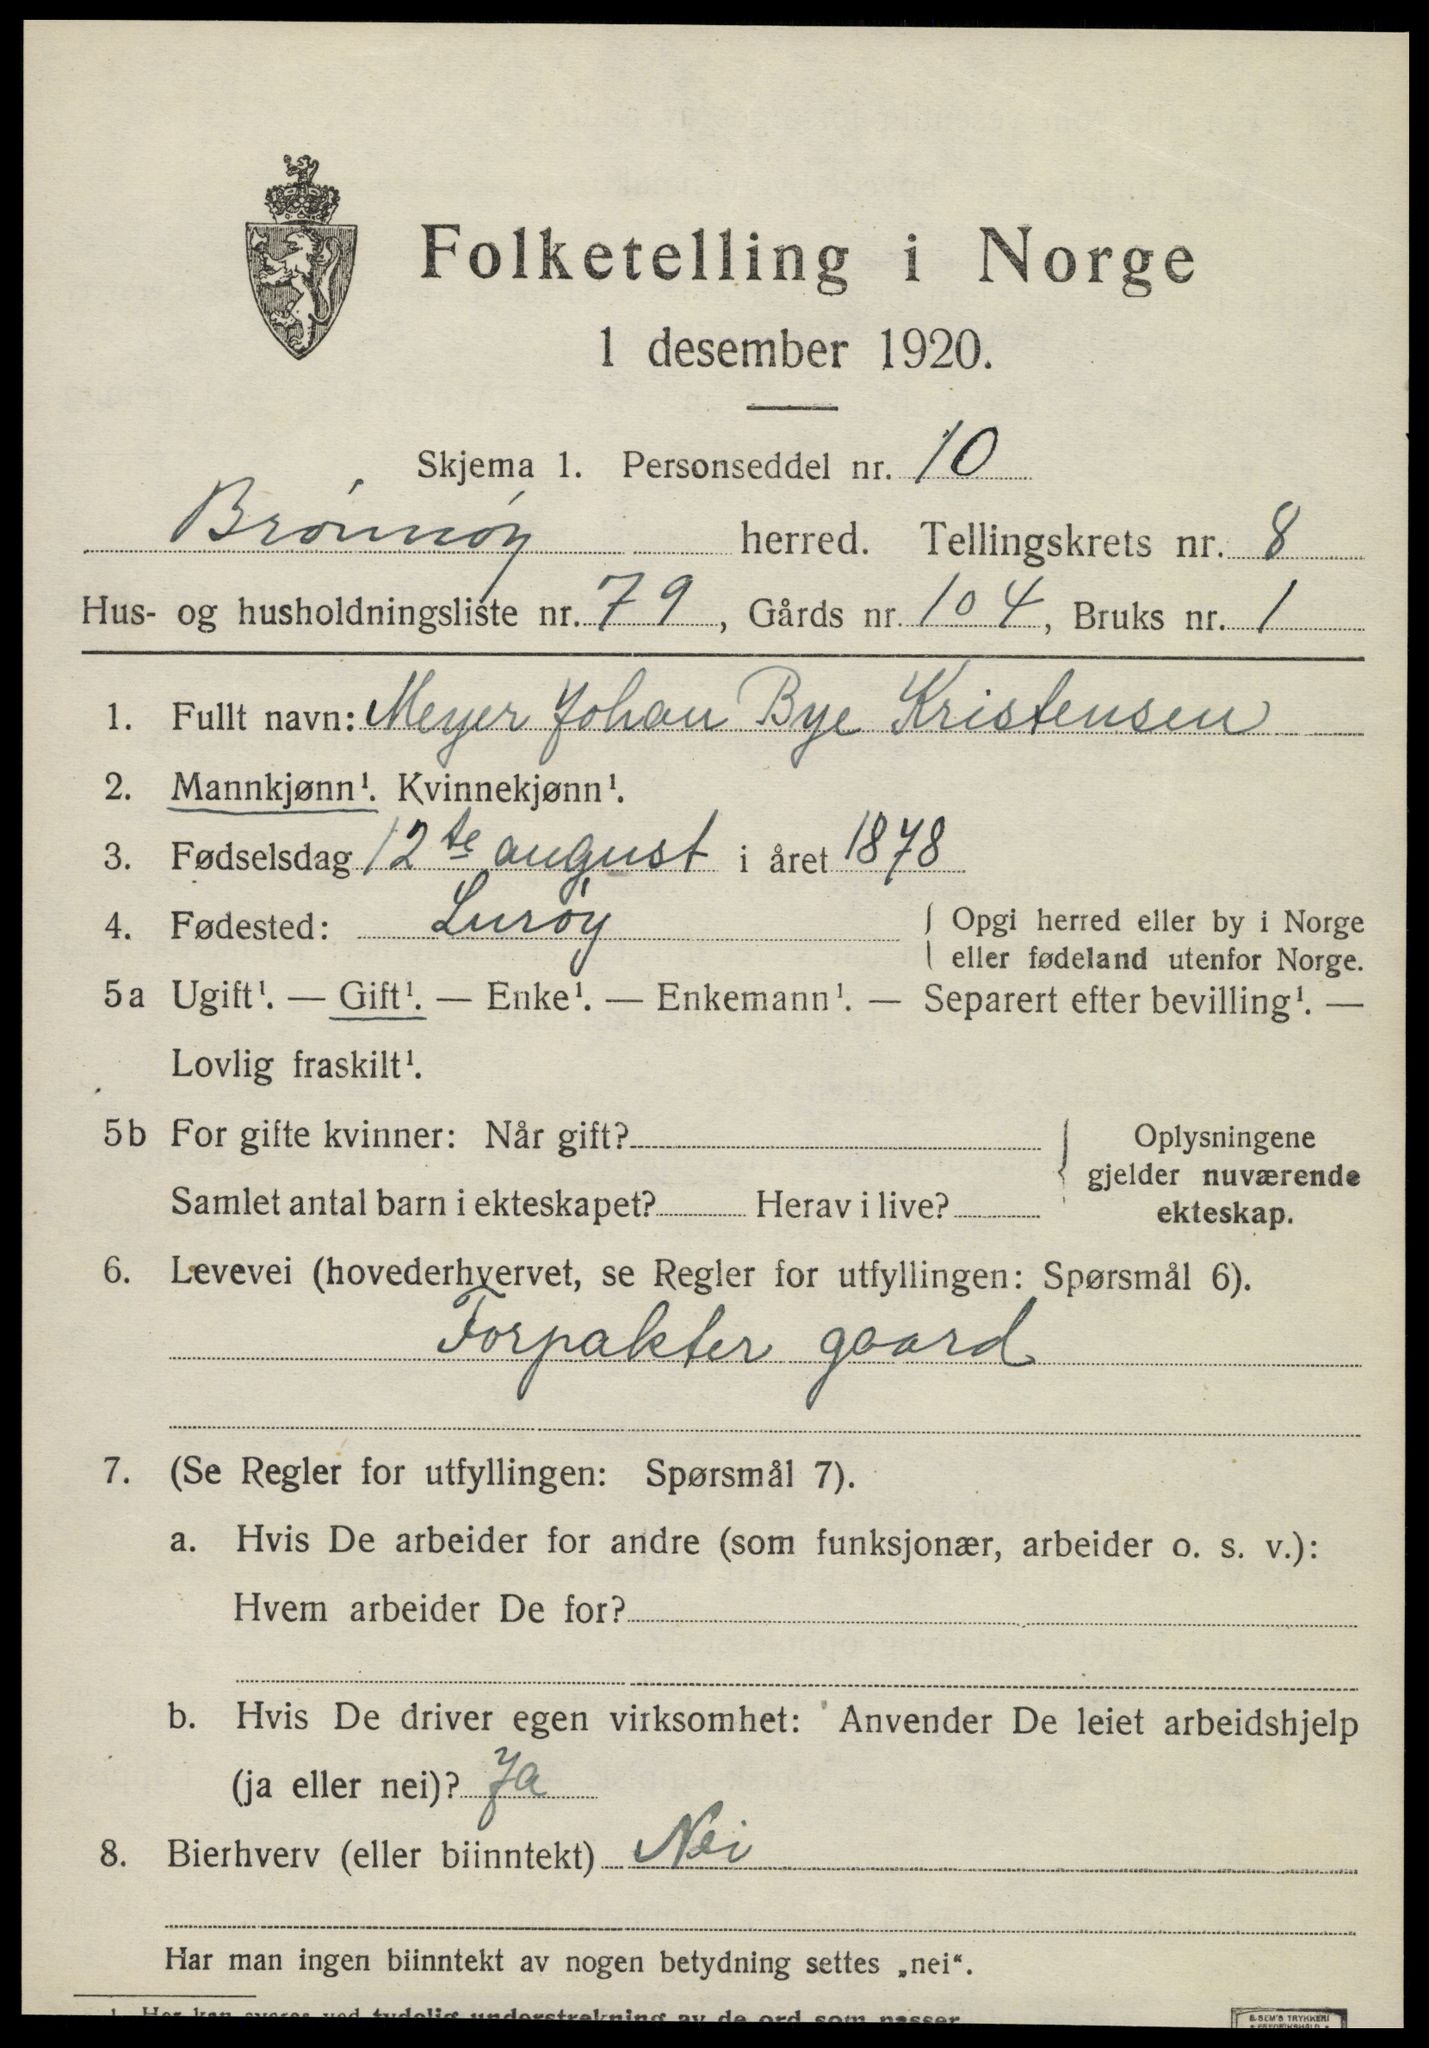 Folketelling i Norge
1 desember 1920.
Skjema 1. Personseddel nr. 10
Brønnøy herred. Tellingskrets nr. 8
Hus- og husholdningsliste nr. 79, Gårds nr. 104, Bruks nr. 1
1. Fullt navn: Meyer Johan Bye Kristensen
2. Mannkjønn¹. Kvinnekjønn¹.
3. Fødselsdag 12te august i året 1878
4. Fødested: Lurøy { Opgi herred eller by i Norge
eller fødeland utenfor Norge.
5a Ugift¹. — Gift¹. — Enke¹. — Enkemann¹. — Separert efter bevilling¹. —
Lovlig fraskilt¹.
5b For gifte kvinner: Når gift? { Oplysningene
gjelder nuværende
Samlet antal barn i ekteskapet? Herav i live? ekteskap.
6. Levevei (hovederhvervet, se Regler for utfyllingen: Spørsmål 6).
Forpakter gaard
7. (Se Regler for utfyllingen: Spørsmål 7).
a. Hvis De arbeider for andre (som funksjonær, arbeider o. s. v.):
Hvem arbeider De for?
b. Hvis De driver egen virksomhet: Anvender De leiet arbeidshjelp
(ja eller nei)? Ja
8. Bierhverv (eller biinntekt) Nei
Har man ingen biinntekt av nogen betydning settes „nei“.
¹ Her kan svares ved tydelig understrekning av de ord som passer.
E. SEM'S TRYKKERI
FREDRIKSHALD